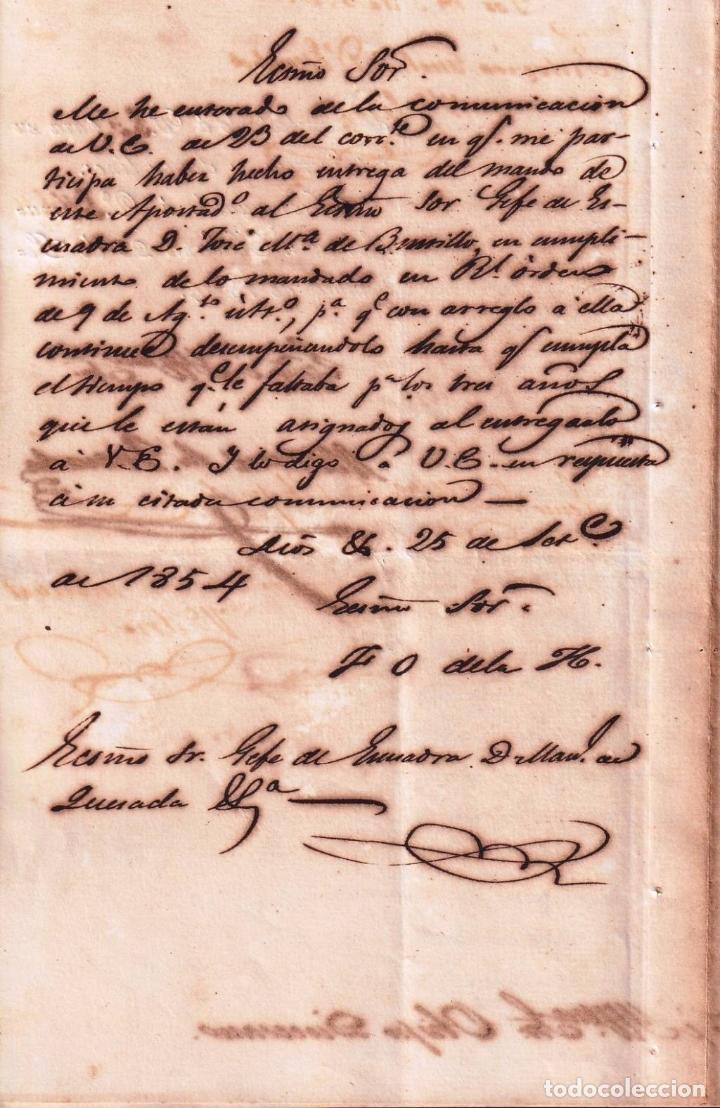 Ecsmo Sor.
Me he enterado de la comunicacion
de V.E. de 23 del corr.te en q.e me par-
ticipa haber hecho entrega del mando de
este Apostad.o al Ecsmo Sor Gefe de Es-
cuadra D. José M.a de Bustillo, en cumpli-
miento de lo mandado en Rl. órden
de 9 de Ag.to últ.o, p.a q.e con arreglo á ella
continue desempeñandolo hasta q.e cumpla
el tiempo q.e le faltaba p.a los tres años
que le están asignados al entregarlo
á V.E. Y lo digo á V.E. en respuesta
á su citada comunicacion —
Dios &. 25 de Set.e
de 1854
Ecsmo Sor.
F O de la H.
Ecsmo Sr. Gefe de Escuadra D. Man.l de
Quesada &a —
todocoleccion